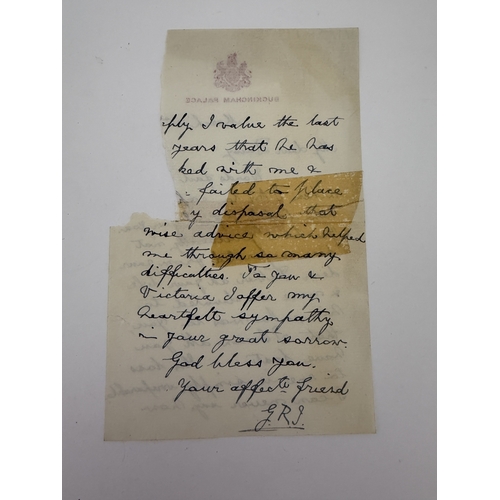 BUCKINGHAM PALACE
ply I value the last
years that he has
ked with me &
failed to place
y disposal that
wise advice which helped
me through so many
difficulties. To you &
Victoria I offer my
heartfelt sympathy
in your great sorrow.
God bless you.
Your affecte friend
G.R.I.